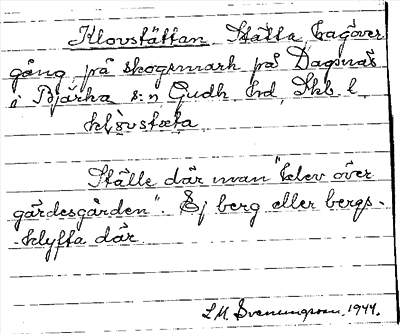 Klovstättan Stätta hagöver
gång på skogsmark på Dagsnäs
i Bjärka s:n Gudh. hd, Skb l.
klòvstæta
Ställe där man "klev över
gärdesgården". Ej berg eller bergs-
-klyfta där.
L.M. Svenungsson. 1944.